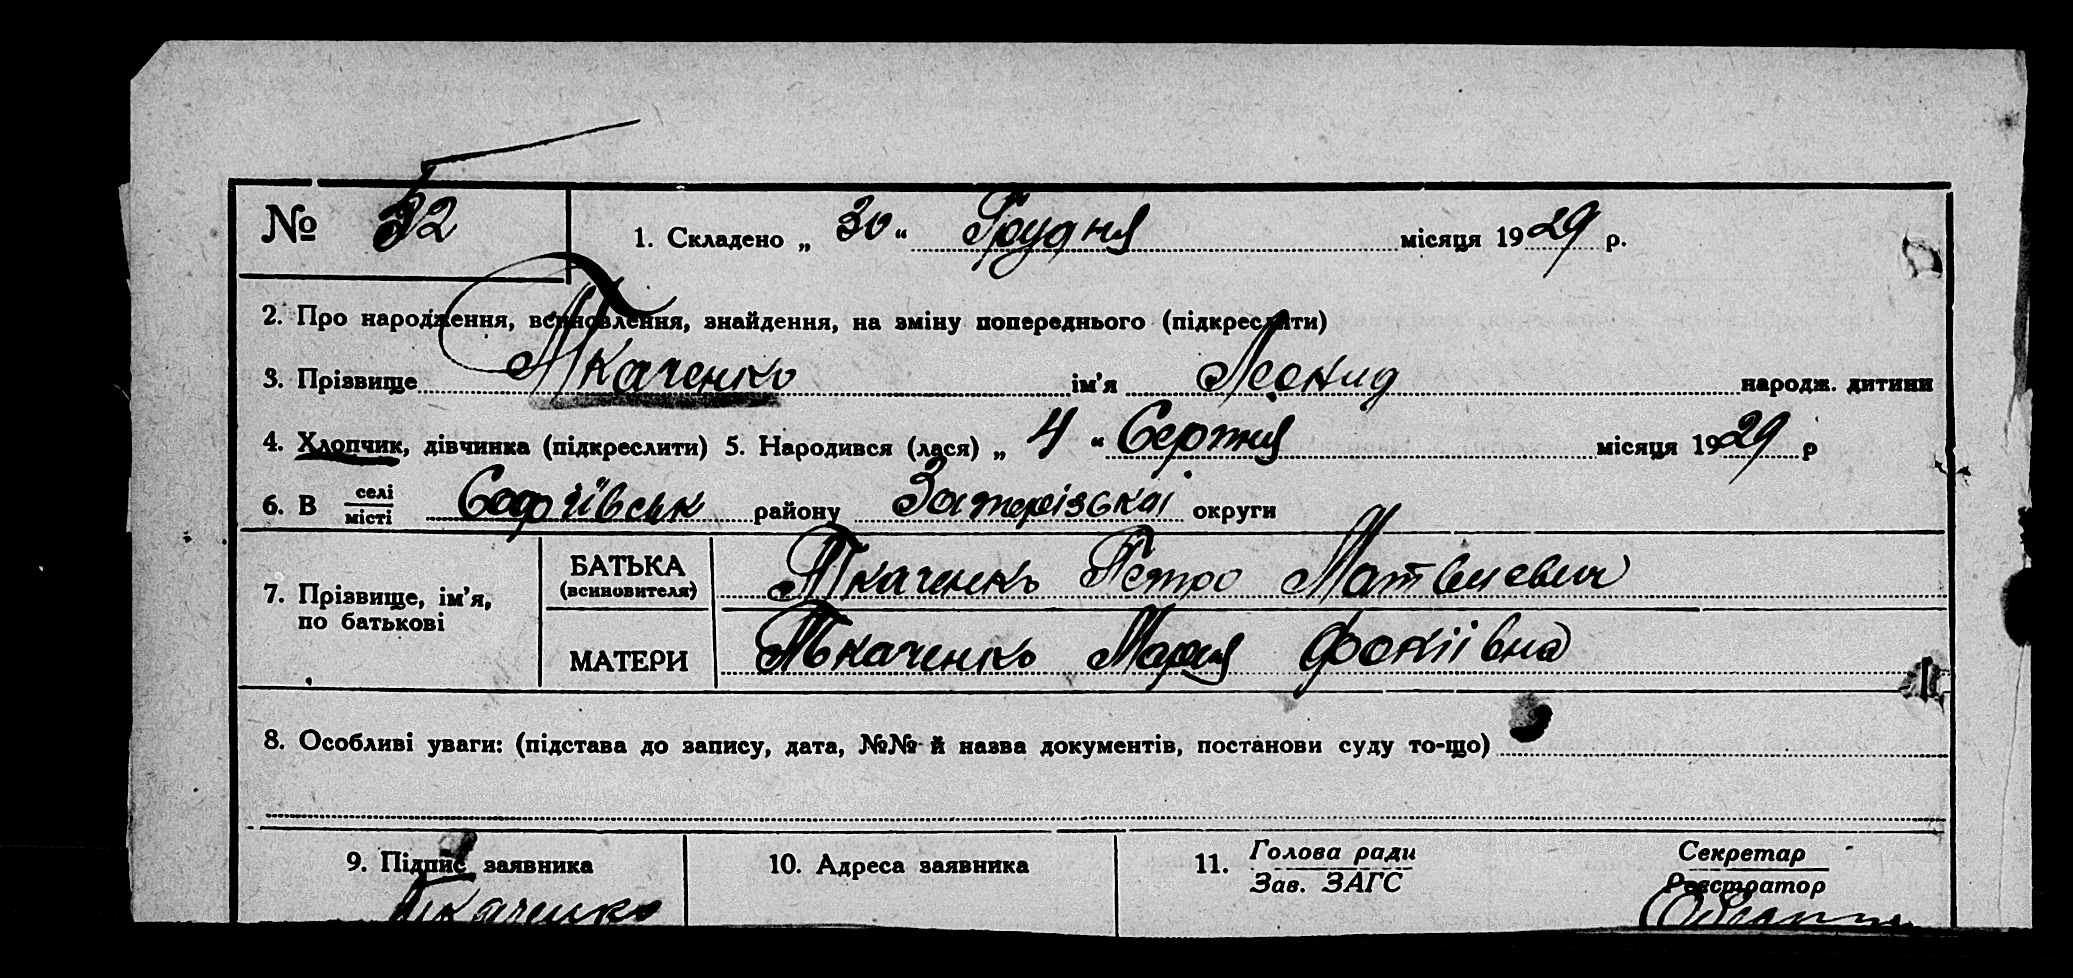 № 32
1. Складено „ 30 “ Грудня місяця 1929 р.
2. Про народження, всиновлення, знайдення, на зміну попереднього (підкреслити)
3. Прізвище Ткаченко ім’я Леонид народж. дитини
4. Хлопчик, дівчинка (підкреслити) 5. Народився (лася) „ 4 “ Серпня місяця 1929 р
6. В селі місті Софіївськ району Запорізькоі округи
7. Прізвище, ім’я, по батькові
БАТЬКА (всиновителя) Ткаченко Петро Матвиевич
МАТЕРИ Ткаченко Мария Фокіївна
8. Особливі уваги: (підстава до запису, дата, №№ й назва документів, постанови суду то-що)
9. Підпис заявника 10. Адреса заявника 11. Голова ради Зав. ЗАГС Секретар Реєстратор
Ткаченко